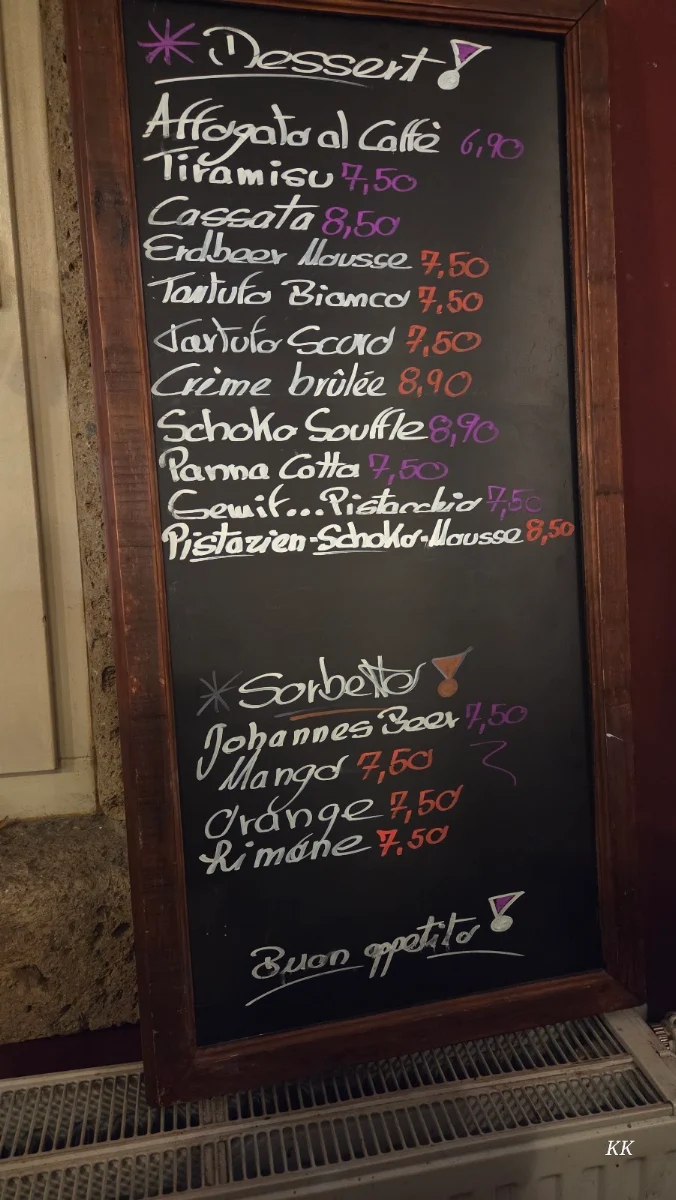 Dessert!
Affogato al Caffè 6,90
Tiramisu 7,50
Cassata 8,50
Erdbeer Mousse 7,50
Tartufo Bianco 7,50
Tartufo 7,50
Crème brûlée 8,90
Schoko Souffle 8,90
Panna Cotta 7,50
Pistacchio 7,50
Pistazien-Schoko-Mousse 8,50
Sorbetto!
Johannes Beer 7,50
Mango 7,50
Orange 7,50
Limone 7.50
Buon appetito!
KK